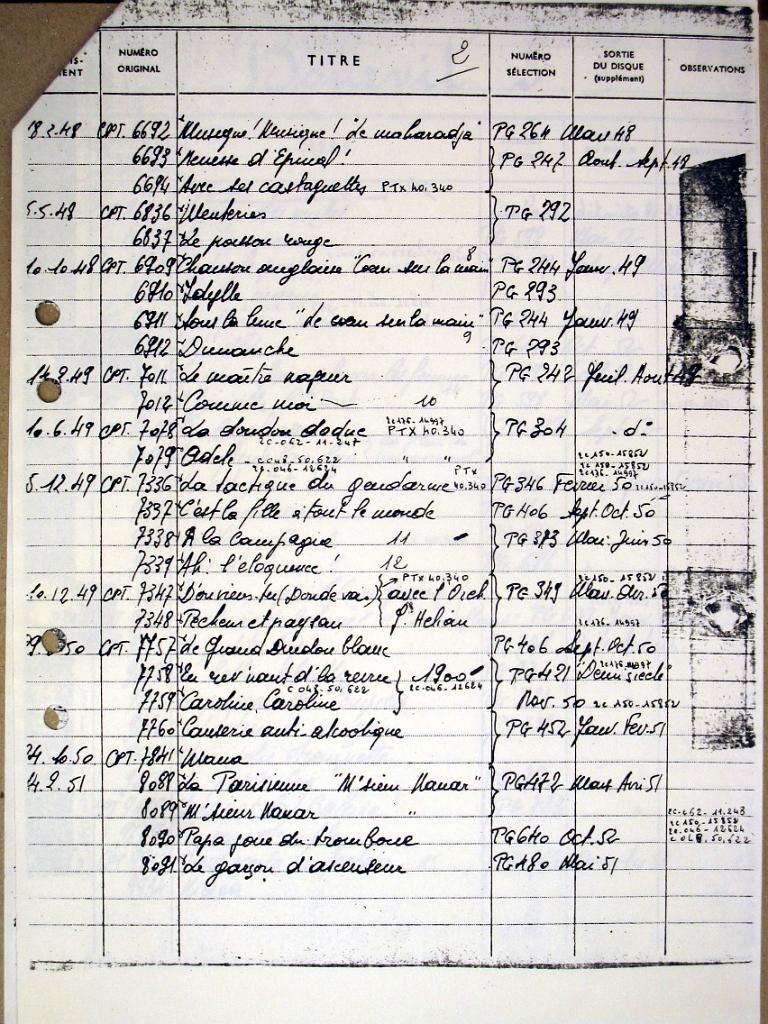 IS-
MENT
NUMÉRO
ORIGINAL
TITRE
2
NUMÉRO
SÉLECTION
SORTIE
DU DISQUE
(supplément)
OBSERVATIONS
18.2.48 CPT. 6692 Musique! Musique! "Le maharadja" PG 264 Mars 48
6693 d'Epinal! PG 247 Août. Sept. 48
6694 Avec ses castagnettes PTX 40.340
5.5.48 CPT. 6836 Menteries PG 292
6837 Le poisson rouge
10.10.48 CPT. 6909 Chanson anglaise "Cœur sur la main" 8 PG 244 Janv. 49
6910 Idylle PG 293
6911 Sous la lune "Le cœur sur la main" PG 244 Janv. 49
6912 Dimanche 9 PG 293
14.2.49 CPT. 7011 Le maître nageur PG 242 Juil. Août 49
7012 Comme moi 10
10.6.49 CPT. 7078 La doudou dodue 2C176-14997 PTX 40.340 PG 304 do
2C-062-11-247
7079 Adèle C048.50.622 " "
2C.046-12624
5.12.49 CPT. 7336 La tactique du gendarme PTX 40.340 PG 346 Février 50 2C150-15852
7337 C'est la fille à tout le monde PG 406 Sept. Oct. 50
7338 A la Campagne 11 PG 373 Mai-Juin 50
7339 Ah! l'éloquence! 12
10.12.49 CPT. 7347 D'où viens-tu (Donde vas) avec l'Orch. PTX 40.340 PG 349 Mars. Avr. 50 2C150-15852
7348 Pêcheur et paysan J. Hélian
9. 50 CPT. 7757 Le Grand Dindon blanc PG 406 Sept. Oct. 50 2C176-14997
7758 En rev'nant d'la revue 1900 PG 421 "Demi siècle" 2C176-14997
C048.50.622 2C-046-12624
7759 Caroline, Caroline Nov. 50 2C150-15852
7760 Causerie anti-alcoolique PG 452 Janv. Fev. 51
24.10.50 CPT. 7841 Mana
4.2.51 8088 La Parisienne "M'sieur Nanar" PG 472 Mars Avr. 51
8089 M'sieur Nanar " 2C-062-11.248
2C150-15852
2C.046-12624
C048.50.622
8090 Papa joue du trombone PG 640 Oct. 52
8091 Le garçon d'ascenseur PG 480 Mai 51